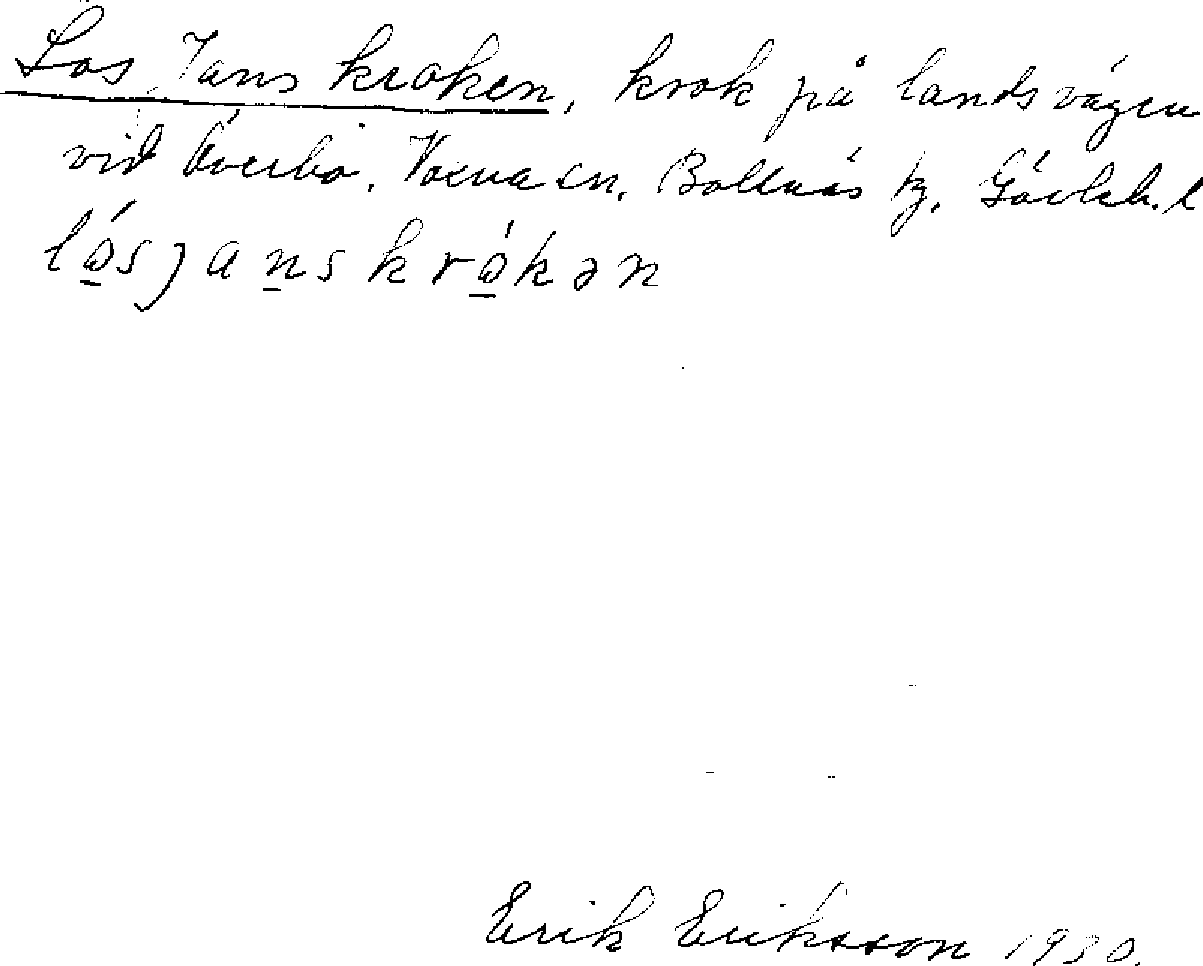 Lås Jans kroken, krok på landsvägen
vid Överbo, Voxna sn. Bollnäs tg. Gävleb. l
låsjanskrókən
Erik Eriksson 1930.